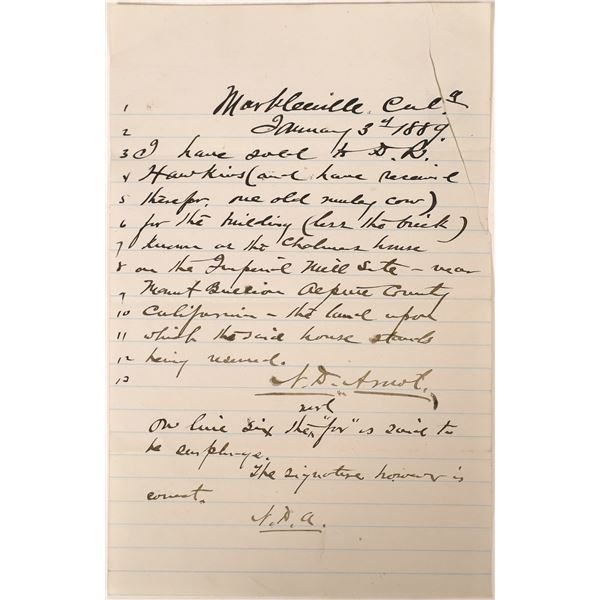 1 Markleeville, Cala
2 January 3d 1889.
3 I have sold to D. R.
4 Hawkins (and have received
5 therefor, one old muley cow)
6 for the building (less the brick)
7 known as the Chalmers house
8 on the Imperial Mill Site - near
9 Mount Bullion Alpine County
10 California - the land upon
11 which the said house stands
12 being reserved.
13 N. D. Arnot.
word
On line six the "for" is said to
be surplusage.
The signature however is
correct.
N. D. A.